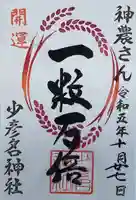 神農さん
令和五年十月廿七日
開運
一粒万倍
少彦名神社